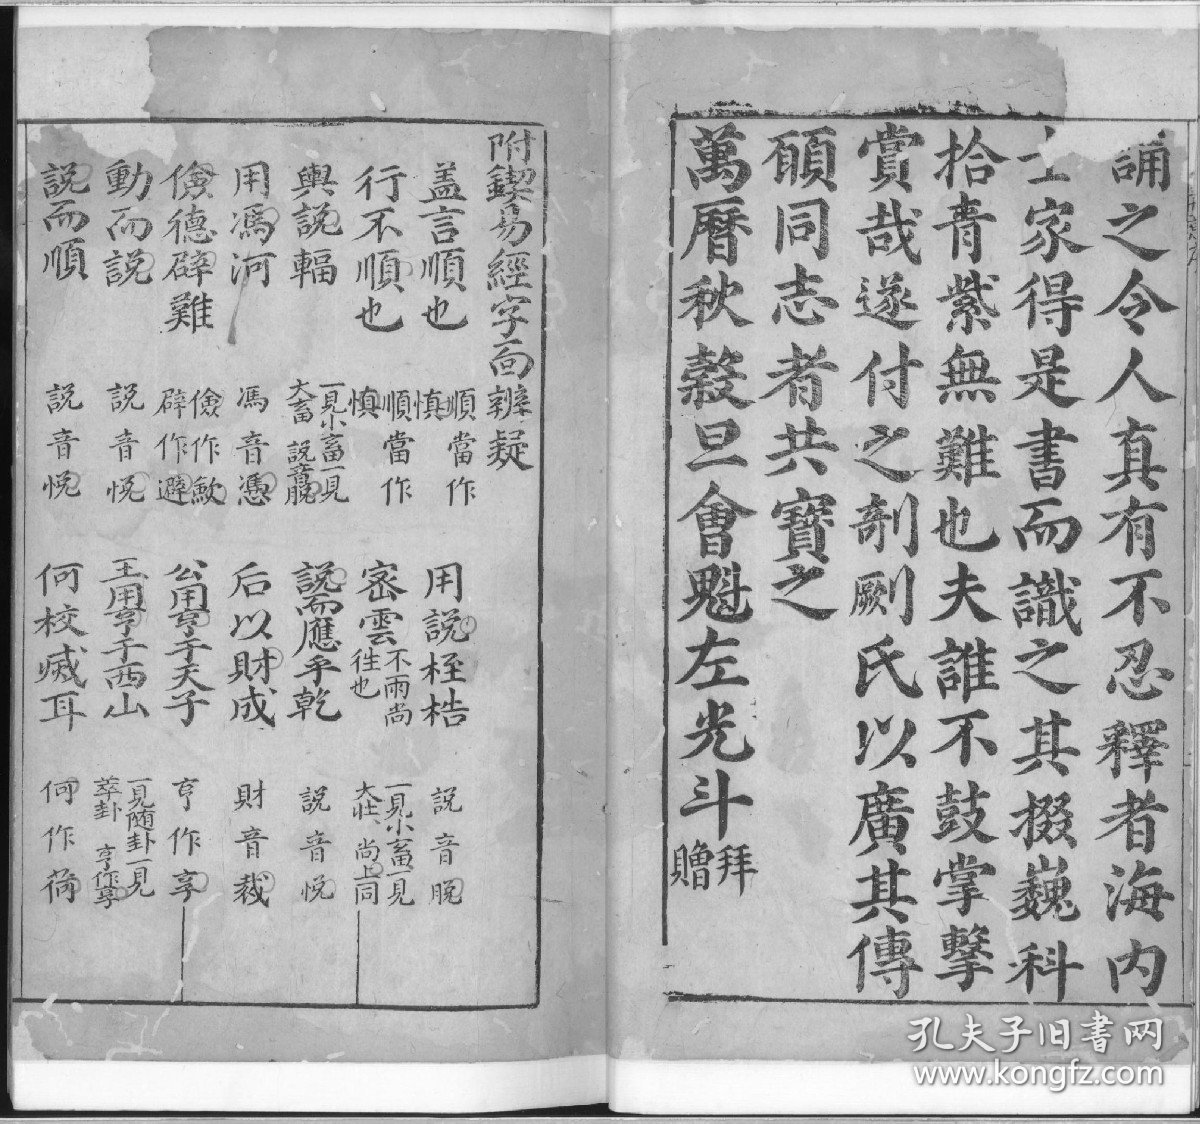 誦之令人真有不忍釋者海內
士家得是書而識之其掇巍科
拾青紫無難也夫誰不鼓掌擊
賞哉遂付之剞劂氏以廣其傳
願同志者共寶之
萬曆秋穀旦會魁左光斗拜贈
附鍥易經字面辨疑
盖言順也 順當作慎 用説桎梏 説音脫
行不順也 順當作慎 宻雲不雨尚徃也 一見小畜一見大壯 尚上同
輿説輻 一見小畜一見大畜 説音脫 説而應乎乾 説音悅
用馮河 馮音憑 后以財成 財音裁
儉德辟難 儉作歛辟作避 公用亨于天子 亨作享
動而説 説音悅 王用亨于西山 一見隨卦一見萃卦 亨作享
説而順 説音悅 何校滅耳 何作荷
孔夫子旧书网
www.kongfz.com